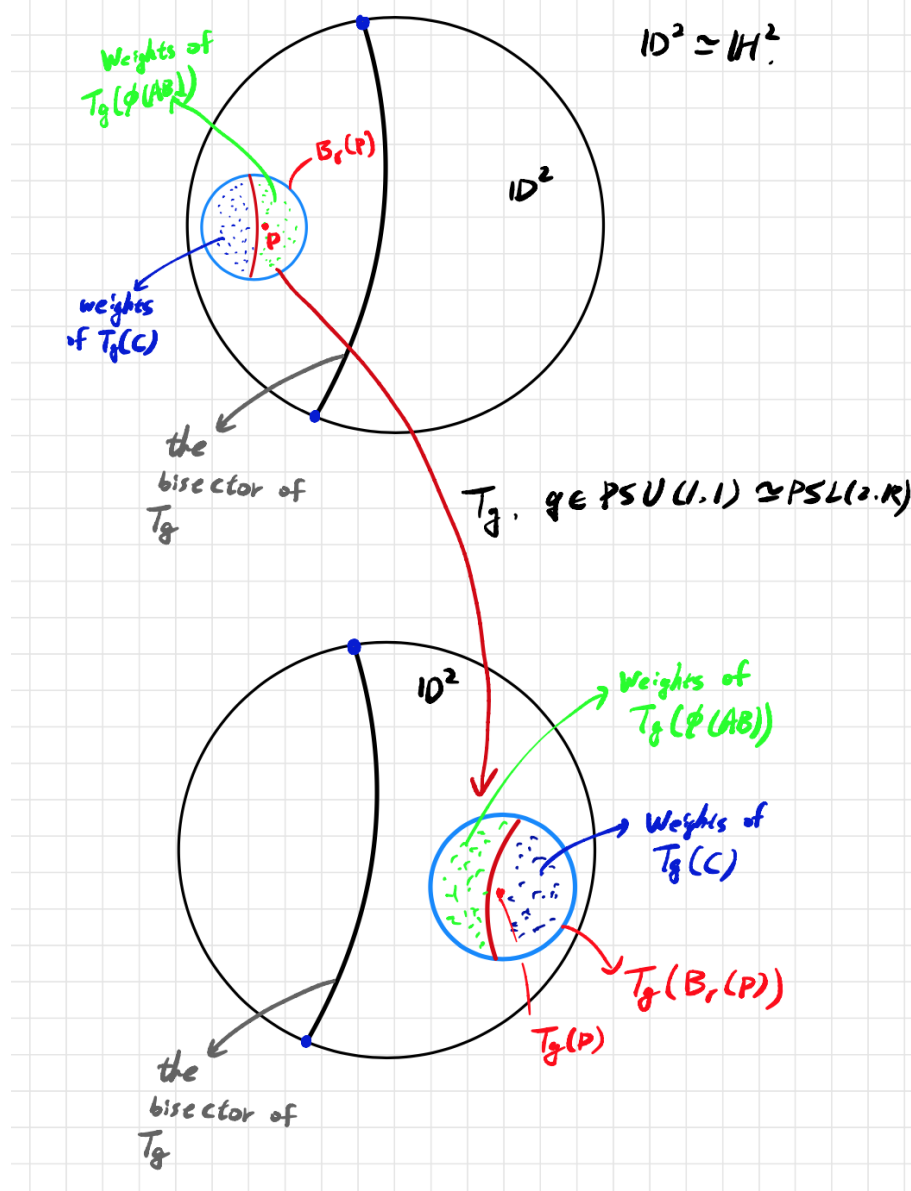 Weights of
Tg(φ(AB))
𝔻² ≃ ℍ².
Br(P)
𝔻²
P
weights
of Tg(C)
the
bisector of
Tg
Tg, g ∈ PSU(1.1) ≃ PSL(2.ℝ)
𝔻²
Weights of
Tg(φ(AB))
Weights of
Tg(C)
Tg(Br(P))
Tg(P)
the
bisector of
Tg